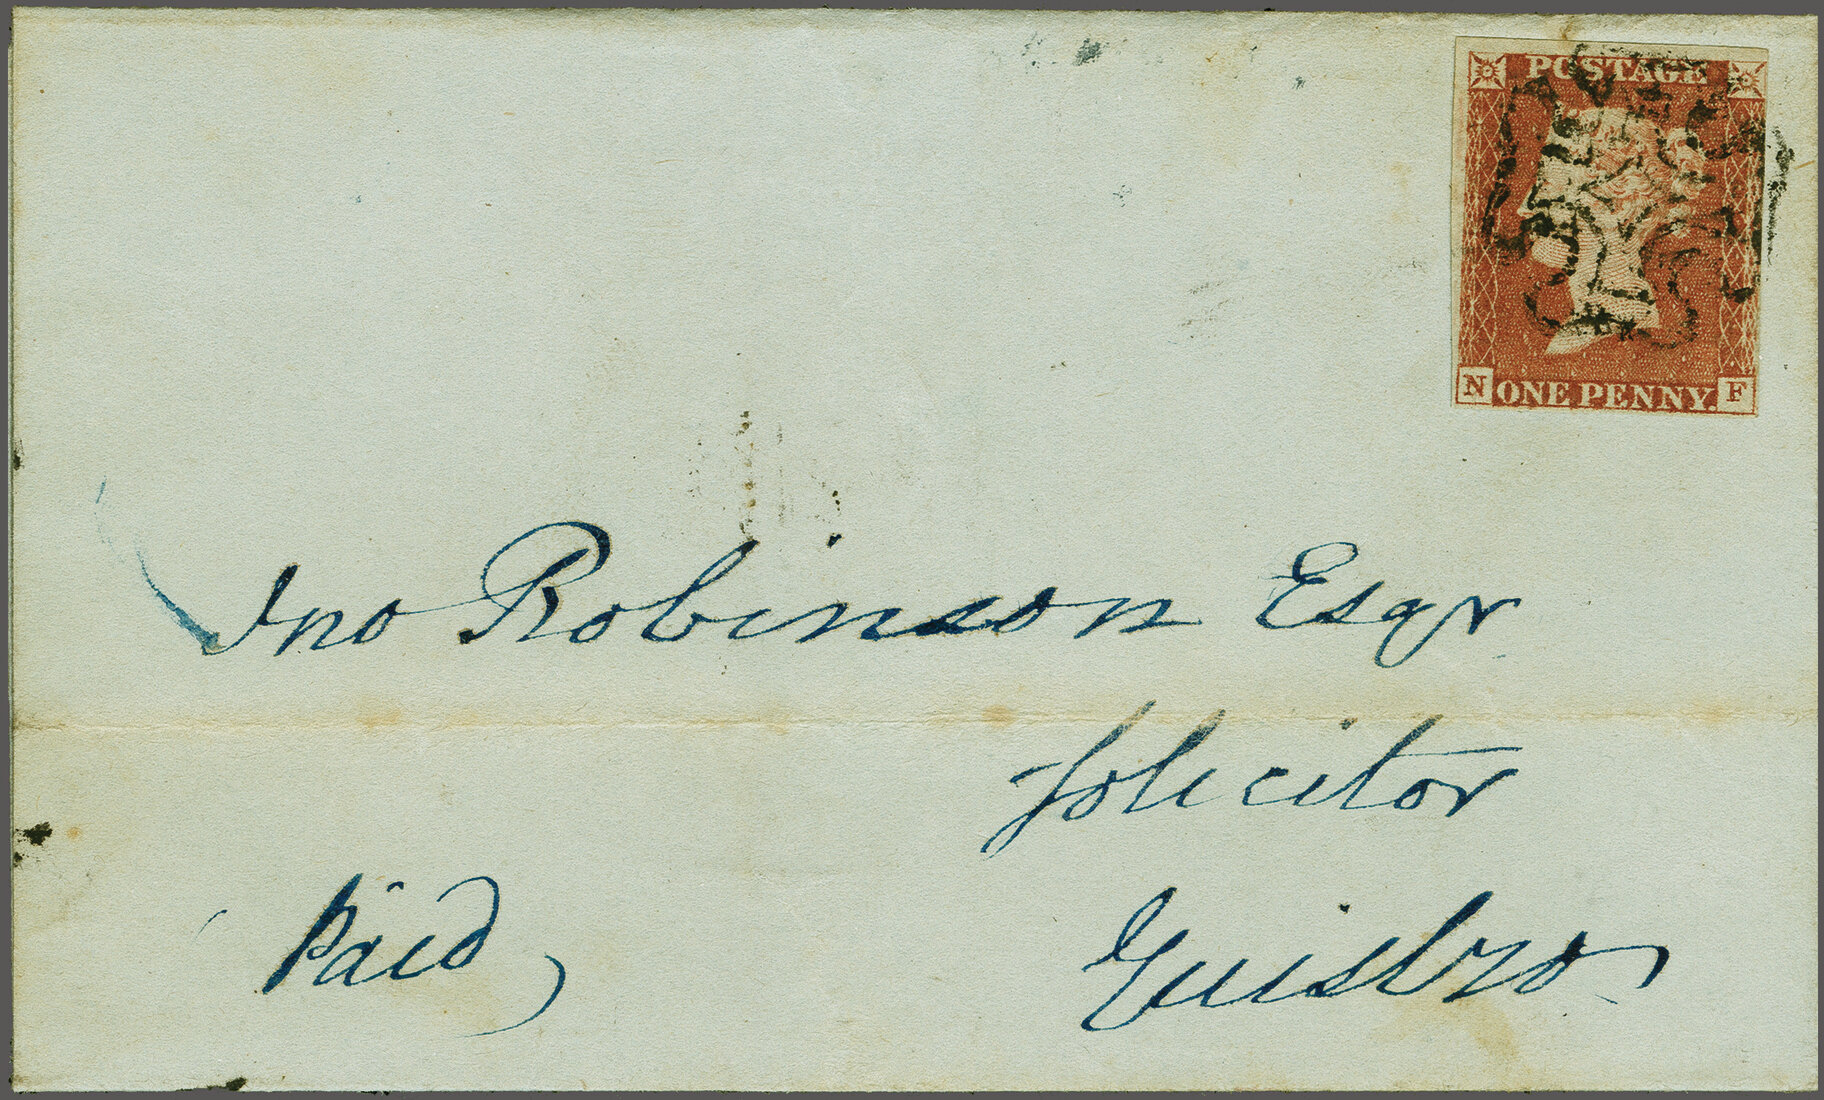 POSTAGE
N ONE PENNY. F
Jno Robinson Esqr
Solicitor
Paid
Guisbro